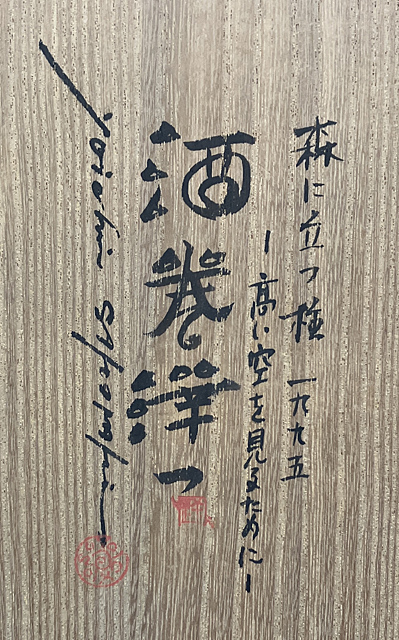 森に立つ種 一九九五
―高い空を見るために―
酒巻洋一
yoichi sakamaki